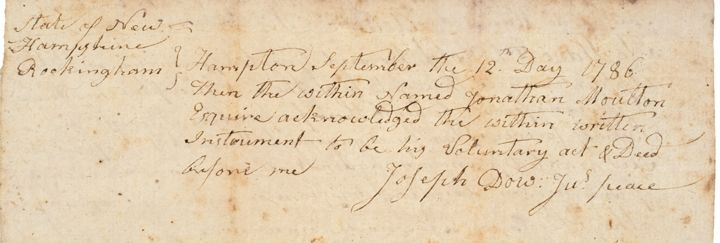 State of New
Hampshire
Rockingham
Hampton September the 12th Day 1786
Then the within Named Jonathan Moulton
Esquire acknowledged the within written
Instrument to be his Voluntary act & Deed
before me
Joseph Dow: Jus peace